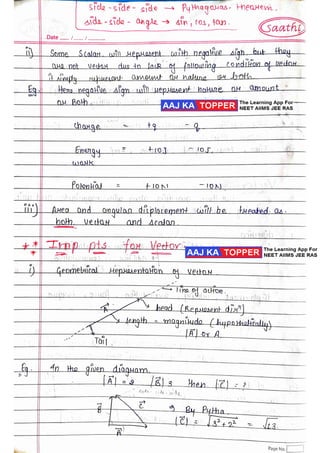 side-side-side → Pythagorias theorem.
side-side-angle → sin, cos, tan.
Saathi
Date ___ / ___ / ___
ii) Some Scalar will represent with negative sign but they
are not vector due to lack of following condition of vector
it simply represent amount or nature or both.
Eg. Here negative sign will represent nature or amount
or Both.
AAJ KA TOPPER The Learning App For NEET AIIMS JEE RAS
charge = +q -q
Energy = +10J -10J.
work
Potential = +10N -10N.
iii) Area and angular displacement will be treated as
both vector and scalar.
** Imp pts for Vector:
AAJ KA TOPPER The Learning App For NEET AIIMS JEE RAS
i) Geometrical representation of vector
line of action
head (Represent dirⁿ)
length = magnitude (hypothetically)
|A⃗| or A.
Tail
Eg. In the given diagram.
|A⃗| = 2 |B⃗| 3 then |C⃗| = ?
B⃗ C⃗ → By Pytha.
|C⃗| = √3²+2² = √13
A⃗
Page No.